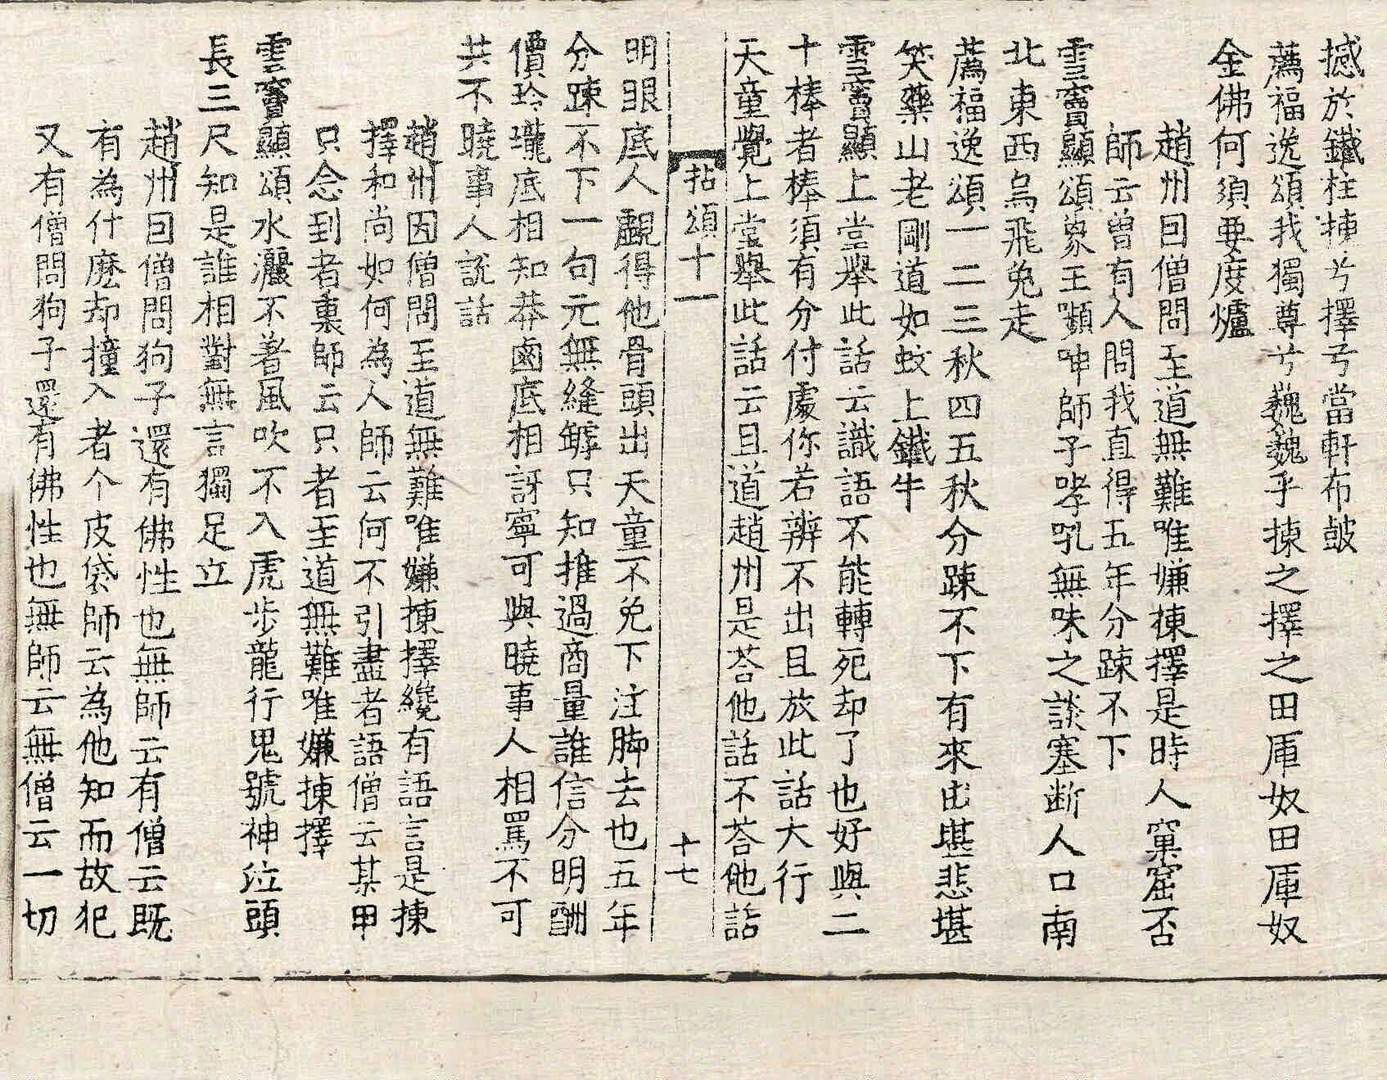 撼於鐵柱揀兮擇兮當軒布鼓
薦福逸頌我獨尊兮巍巍乎揀之擇之田厙奴田厙奴
金佛何須要度爐
趙州因僧問至道無難唯嫌揀擇是時人窠窟否
師云曾有人問我直得五年分踈不下
雪竇顯頌象王嚬呻師子哮吼無味之談塞断人口南
北東西烏飛兔走
薦福逸頌一二三秋四五秋分踈不下有來由堪悲堪
笑藥山老剛道如蚊上鐵牛
雪竇顯上堂舉此話云識語不能轉死却了也好與二
十棒者棒須有分付處你若辨不出且放此話大行
天童覺上堂舉此話云且道趙州是荅他話不荅他話
拈頌十一
十七
明眼底人覷得他骨頭出天童不免下注脚去也五年
分踈不下一句元無縫罅只知推過商量誰信分明酬
價玲瓏底相知莽鹵底相訝寧可與曉事人相罵不可
共不曉事人說話
趙州因僧問至道無難唯嫌揀擇纔有語言是揀
擇和尚如何為人師云何不引盡者語僧云某甲
只念到者裏師云只者至道無難唯嫌揀擇
雪竇顯頌水灑不著風吹不入虎步龍行鬼號神泣頭
長三尺知是誰相對無言獨足立
趙州因僧問狗子還有佛性也無師云有僧云既
有為什麽却撞入者个皮袋師云為他知而故犯
又有僧問狗子還有佛性也無師云無僧云一切